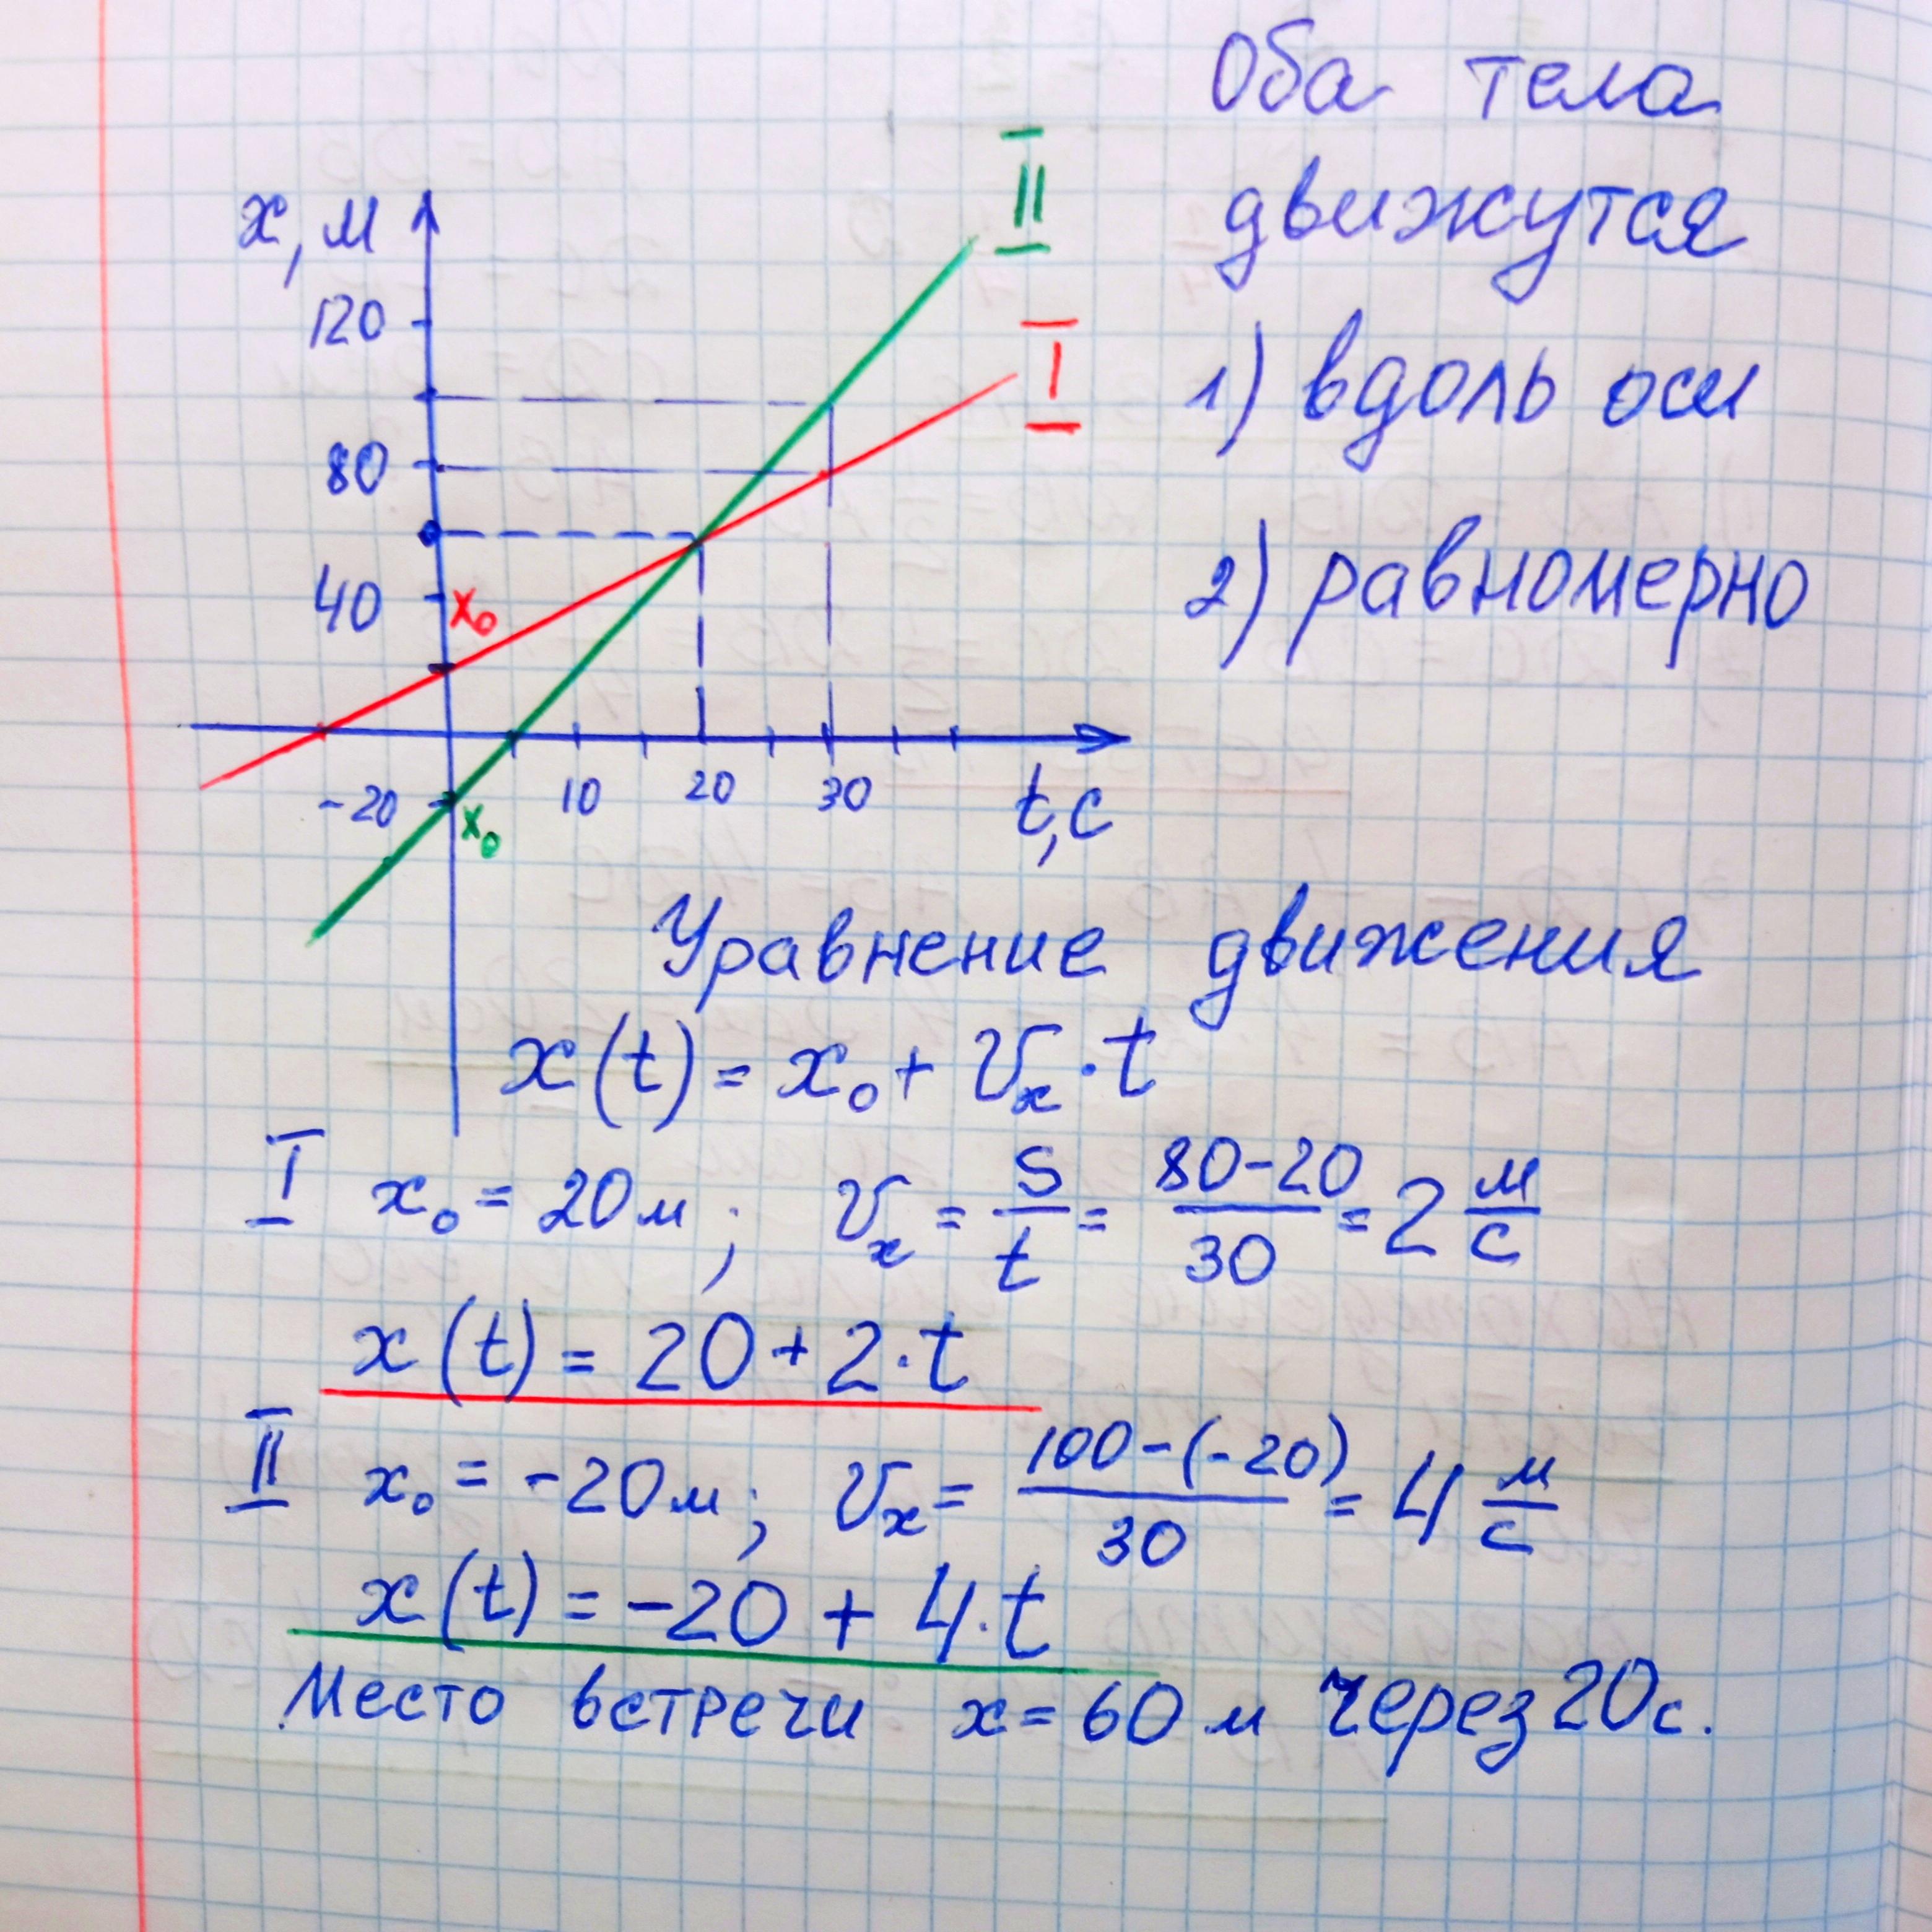 Оба тела
движутся
1) вдоль оси
2) равномерно
x, м
120
80
40
x₀
-20
x₀
10 20 30
t, c
II
I
Уравнение движения
x(t) = x₀ + Vₓ · t
I x₀ = 20 м ; Vₓ = S/t = (80-20)/30 = 2 м/с
x(t) = 20 + 2 · t
II x₀ = -20 м ; Vₓ = (100-(-20))/30 = 4 м/с
x(t) = -20 + 4 · t
Место встречи x = 60 м через 20 с.